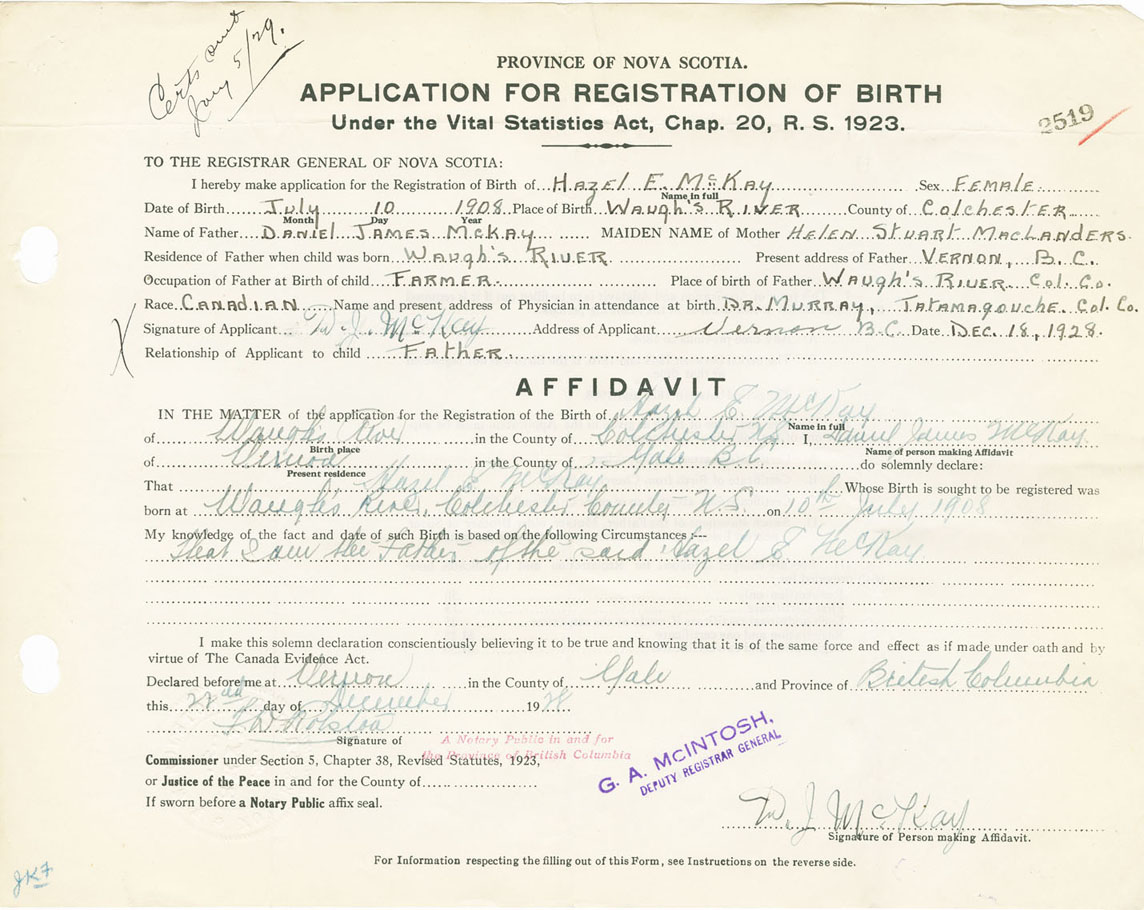 Certs sent
Jany 5/29.
PROVINCE OF NOVA SCOTIA.
APPLICATION FOR REGISTRATION OF BIRTH
Under the Vital Statistics Act, Chap. 20, R. S. 1923.
2519
TO THE REGISTRAR GENERAL OF NOVA SCOTIA:
I hereby make application for the Registration of Birth of Hazel E. McKay Sex Female
Name in full
Date of Birth July 10 1908 Place of Birth Waugh's River County of Colchester
Month Day Year
Name of Father Daniel James McKay MAIDEN NAME of Mother Helen Stuart MacLanders.
Residence of Father when child was born Waugh's River Present address of Father Vernon, B. C.
Occupation of Father at Birth of child Farmer. Place of birth of Father Waugh's River Col. Co.
Race Canadian Name and present address of Physician in attendance at birth Dr. Murray, Tatamagouche. Col. Co.
X Signature of Applicant D. J. McKay Address of Applicant Vernon B.C. Date Dec. 18, 1928.
Relationship of Applicant to child Father.
AFFIDAVIT
IN THE MATTER of the application for the Registration of the Birth of Hazel E McKay
Name in full
of Waughs River in the County of Colchester N.S. I, Daniel James McKay
Birth place Name of person making Affidavit
of Vernon in the County of Yale B.C. do solemnly declare:
Present residence
That Hazel E McKay Whose Birth is sought to be registered was
born at Waugh's River, Colchester County N.S. on 10th July 1908
My knowledge of the fact and date of such Birth is based on the following Circumstances:---
That I am the Father of the said Hazel E McKay
I make this solemn declaration conscientiously believing it to be true and knowing that it is of the same force and effect as if made under oath and by
virtue of The Canada Evidence Act.
Declared before me at Vernon in the County of Yale and Province of British Columbia
this 22nd day of December 1928
F W Rolston
Signature of
A Notary Public in and for
the Province of British Columbia
Commissioner under Section 5, Chapter 38, Revised Statutes, 1923,
or Justice of the Peace in and for the County of
If sworn before a Notary Public affix seal.
G. A. McINTOSH,
DEPUTY REGISTRAR GENERAL
D. J McKay
Signature of Person making Affidavit.
For Information respecting the filling out of this Form, see Instructions on the reverse side.
JKF